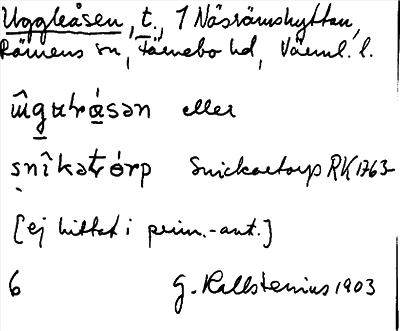 Uggleåsen, t., 1 Näsrämshyttan,
Rämens sn, Färnebo hd, Värml. l.
eller
snîkətórp Snickartorp RK 1763
[ej hittat i prim.-ant.]
6 G. Kallstenius 1903